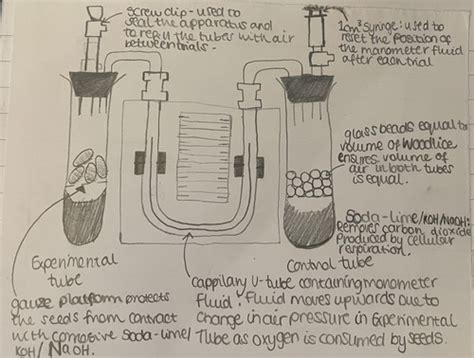 screw clip - used to
seal the apparatus and
to refill the tubes with air
between trials -
1cm³ syringe: used to
reset the position of
the manometer fluid
after each trial
glass beads equal to
volume of woodlice
ensures volume of
air in both tubes
is equal.
Soda-lime/KOH/NaOH:
Removes carbon dioxide
Produced by cellular
respiration.
Experimental
tube
Control tube
gauze platform protects
the seeds from contact
with corrosive Soda-lime/
KOH/ NaOH.
cappilary U-tube containing manometer
Fluid! Fluid moves upwards due to
change in air pressure in Experimental
Tube as oxygen is consumed by seeds.